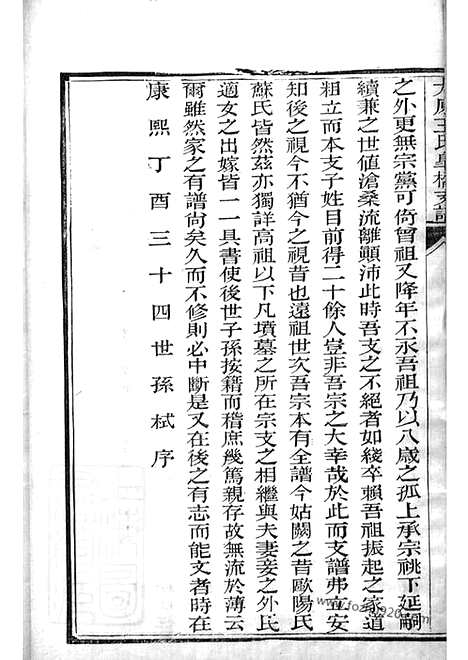 太原王氏皋橋支譜
之外更無宗黨可倚曾祖又降年不永吾祖乃以八歲之孤上承宗祧下延嗣
續兼之世值滄桑流離顛沛此時吾支之不絕者如綫卒賴吾祖振起之家道
粗立而本支子姓目前得二十餘人豈非吾宗之大幸哉於此而支譜弗立安
知後之視今不猶今之視昔也遠祖世次吾宗本有全譜今姑闕之昔歐陽氏
蘇氏皆然茲亦獨詳高祖以下凡墳墓之所在宗支之相繼與夫妻妾之外氏
適女之出嫁皆一一具書使後世子孫按籍而稽庶幾篤親存故無流於薄云
爾雖然家之有譜尚矣久而不修則必中斷是又在後之有志而能文者時在
康熙丁酉三十四世孫栻序